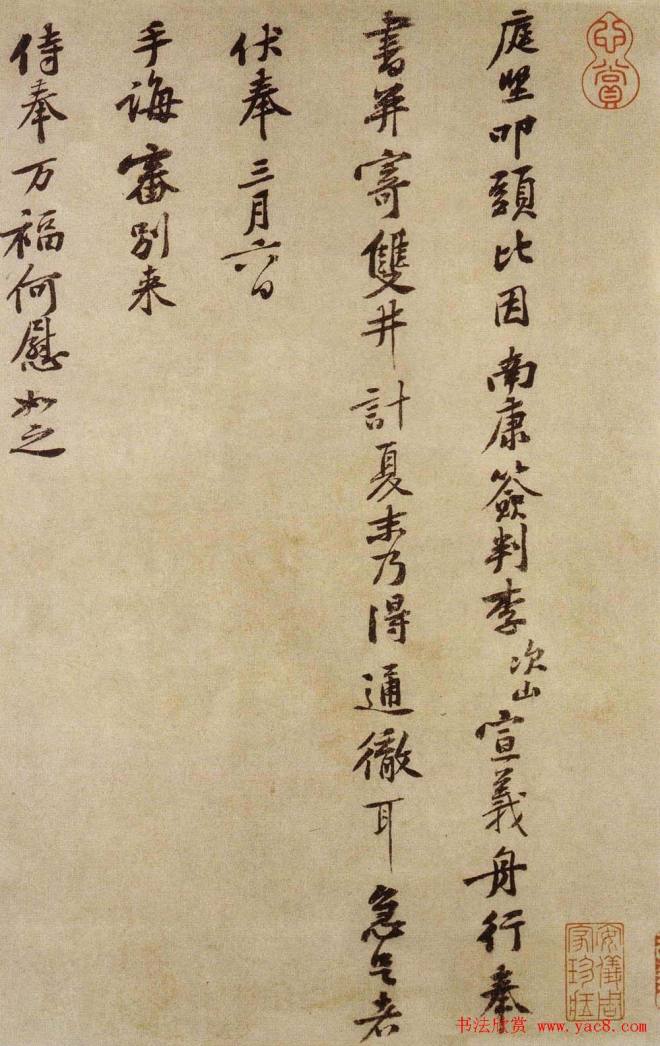 心賞
庭堅叩頭比因南康簽判李次山宣義舟行奉
書并寄雙井計夏末乃得通徹耳急足者
伏奉三月六日
手誨審別来
侍奉万福何慰如之
安儀周家珍藏
书法欣赏 www.yac8.com